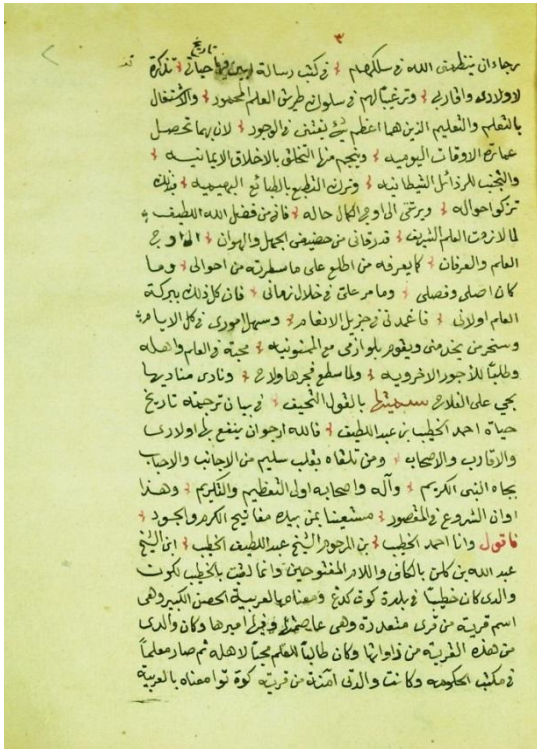 ٣
تاريخ
رجاء ان ينظمني الله في سلكهم في كتب رسالة ابين فيها حياتي تذكرة
لاولادي واقاربي وترغيبا لهم في سلوك طريق العلم المحمود والاشتغال
بالتعلم والتعليم الذين هما اعظم شيء يقتنى في الوجود لان بهما تحصل
عمارة الاوقات اليوميه وينجم منها التخلق بالاخلاق الايمانيه
والتجنب للرذائل الشيطانيه وترك التطبع بالطبائع البهيميه فبذلك
تزكو احواله ويرتقى الى اوج الكمال حاله فاني من فضل الله اللطيف
لما لازمت العلم الشريف قد رقاني من حضيض الجهل والهوان الى اوج
العلم والعرفان كما يعرفه من اطلع على ما سطرته من احوالي وما
كان اصلي وفصلي وما مر علي في خلال زماني فان كل ذلك ببركة
العلم اولاني فاغمدني في جزيل الانعام وسهل اموري في كل الايام
وسخر من يخدمني ويقوم بلوازمي مع الممنونيه محبة في العلم واهله
وطلبا للأجور الاخرويه ولما سطع فجرها ولاح ونادى مناديها
بحي على الفلاح سميتها بالقول التحيف في بيان ترجمة تاريخ
حياة احمد الخطيب بن عبد اللطيف فالله ارجو ان ينفع بها اولادي
والاقارب والاصحاب ومن تلقاه بقلب سليم من الاجانب والاحباب
بجاه النبي الكريم وآله واصحابه اولى التعظيم والتكريم وهذا
اوان الشروع في المقصود مستعينا بمن بيده مفاتيح الكرم والجود
فاقول وانا احمد الخطيب بن المرحوم الشيخ عبد اللطيف الخطيب ابن الشيخ
عبد الله بن كلن بالكاف واللام المفتوحين وانما لقبت بالخطيب لكون
والدي كان خطيبا في بلدة كوت كدغ ومعناه بالعربية الحصن الكبير وهي
اسم قرية من قرى متعددة وهي عاصمتها وفيها اميرها وكان والدي
من هذه القرية من ذواتها وكان طالبا للعلم محبا لاهله ثم صار معلما
في مكتب الحكومه وكانت والدتي آمنة من قرية كوة توا معناه بالعربية